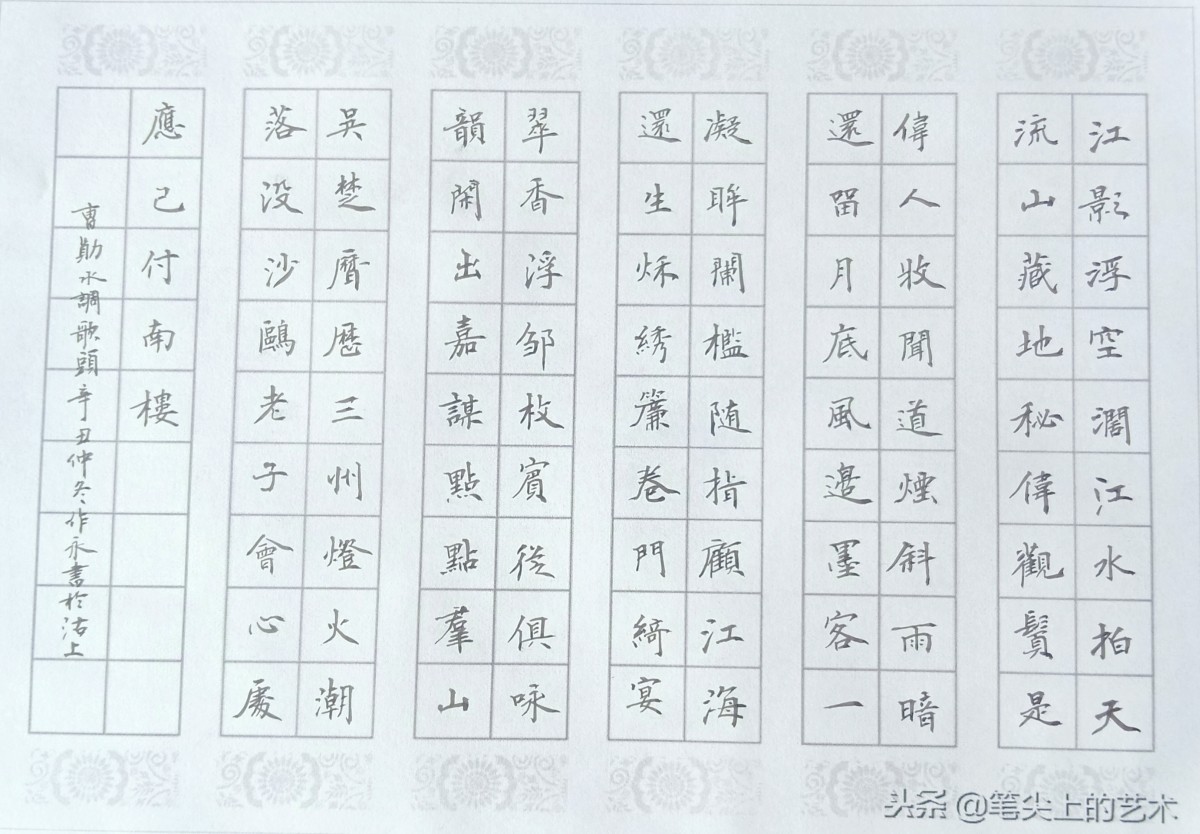 江影浮空濶江水拍天
流山藏地秘偉觀鬂是
偉人收聞道煙斜雨暗
還留月底風邊墨客一
凝眸闌檻随指顧江海
還生烁綉簾卷門綺宴
翠香浮邹枚賓從俱咏
韻閑出嘉謀點點羣山
吳楚曆歷三州燈火潮
落没沙鷗老子會心處
應已付南樓
曹勛水調歌頭辛丑仲冬作永書於沽上
头条 @笔尖上的艺术